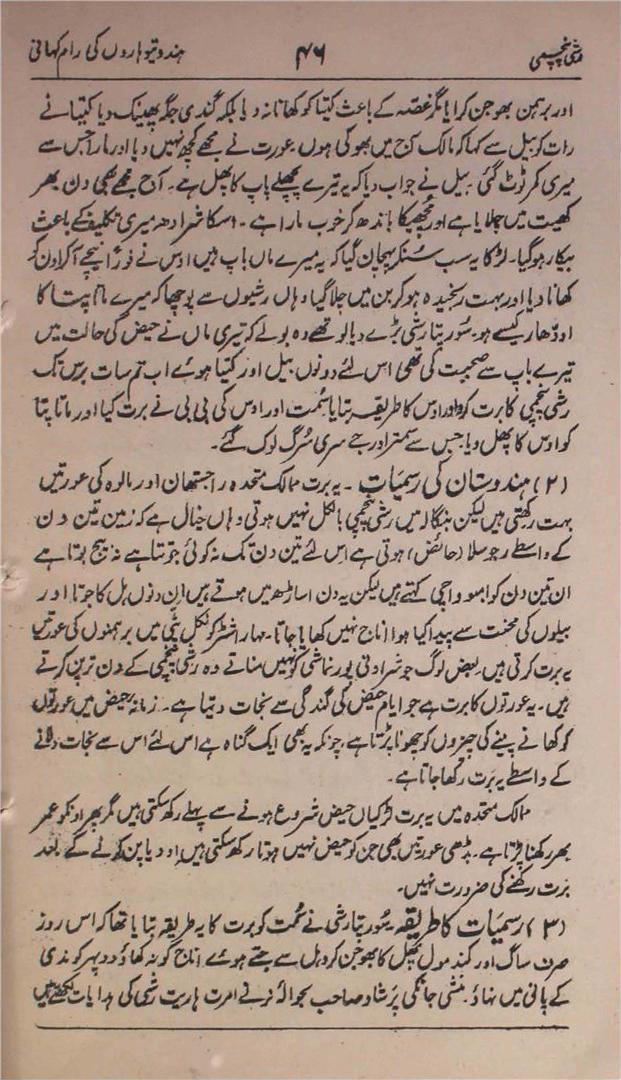 رشی پنچمی ۴۶ ہندو تیوہاروں کی رام کہانی
اور برہمن بھوجن کرایا مگر غصہ کے باعث کتیا کو کھانا نہ دیا بلکہ گندی جگہ پھینک دیا کتیا نے
رات کو بیل سے کہا کہ مالک آج میں بھوکی ہوں۔ عورت نے مجھے کچھ نہیں دیا اور مارا جس سے
میری کمر ٹوٹ گئی۔ بیل نے جواب دیا کہ یہ تیرے پچھلے پاپ کا پھل ہے۔ آج مجھے بھی دن بھر
کھیت میں چلایا ہے اور چھینکا باندھ کر خوب مارا ہے۔ اسکا شرادھ میری تکلیف کے باعث
بیکار ہو گیا۔ لڑکا یہ سب سُنکر پہچان گیا کہ یہ میرے ماں باپ ہیں اوس نے فوراً نیچے آکر اون کو
کھانا دیا اور بہت رنجیدہ ہو کر بن میں چلا گیا وہاں رشیوں سے پوچھا کہ میرے ماتا پتا کا
اودھار کیسے ہو۔ سُورپتا رشی بڑے دیالو تھے وہ بولے کہ تیری ماں نے حیض کی حالت میں
تیرے باپ سے صحبت کی تھی اس لئے دونوں بیل اور کتیا ہوئے اب تم سات برس تک
رشی پنچمی کا برت کرو اور اوس کا طریقہ بتایا سُمت اور اوس کی بی بی نے برت کیا اور ماتا پتا
کو اوس کا پھل دیا جس سے سمترا اور جے سری سُرگ لوک گئے۔
(۲) ہندوستان کی رسمیات۔ یہ برت ممالک متحدہ راجستھان اور مالوہ کی عورتیں
بہت رکھتی ہیں لیکن بنگالہ میں رشی پنچمی بالکل نہیں ہوتی وہاں خیال ہے کہ زمین تین دن
کے واسطے رجوسلا (حائض) ہوتی ہے اس لئے تین دن تک نہ کوئی جوتتا ہے نہ بیج بوتا ہے
ان تین دن کو امبوواچی کہتے ہیں لیکن یہ دن اساڑھ میں ہوتے ہیں ان دنوں ہل کا جوتا اور
بیلوں کی محنت سے پیدا کیا ہوا اناج نہیں کھایا جاتا۔ مہاراشٹر کوکل پنتی میں برہمنوں کی عورتیں
یہ برت کرتی ہیں۔ بعض لوگ جو شراونی پورنماشی کو نہیں مناتے وہ رشی پنچمی کے دن ترپن کرتے
ہیں۔ یہ عورتوں کا برت ہے جو ایام حیض کی گندگی سے نجات دیتا ہے۔ زمانہ حیض میں عورتوں
کو کھانے پینے کی چیزوں کو چھونا پڑتا ہے، چونکہ یہ بھی ایک گناہ ہے اس لئے اس سے نجات دلانے
کے واسطے یہ برت رکھا جاتا ہے۔
ممالک متحدہ میں یہ برت لڑکیاں حیض شروع ہونے سے پہلے رکھ سکتی ہیں مگر پھر اونکو عمر
بھر رکھنا پڑتا ہے۔ بڈھی عورتیں بھی جن کو حیض نہیں ہوتا رکھ سکتی ہیں اودیاپن کرنے کے بعد
برت رکھنے کی ضرورت نہیں۔
(۳) رسمیات کا طریقہ سُورپتا رشی نے سُمت کو برت کا یہ طریقہ بتایا تھا کہ اس روز
صرف ساگ اور کند مول پھل کا بھوجن کرو ہل سے جتے ہوئے اناج کو نہ کھاؤ دوپہر کو ندی
کے پانی میں نہاؤ۔ منشی جانکی پرشاد صاحب بحوالہ امرت ہاریت رشی کی ہدایات لکھتے ہیں